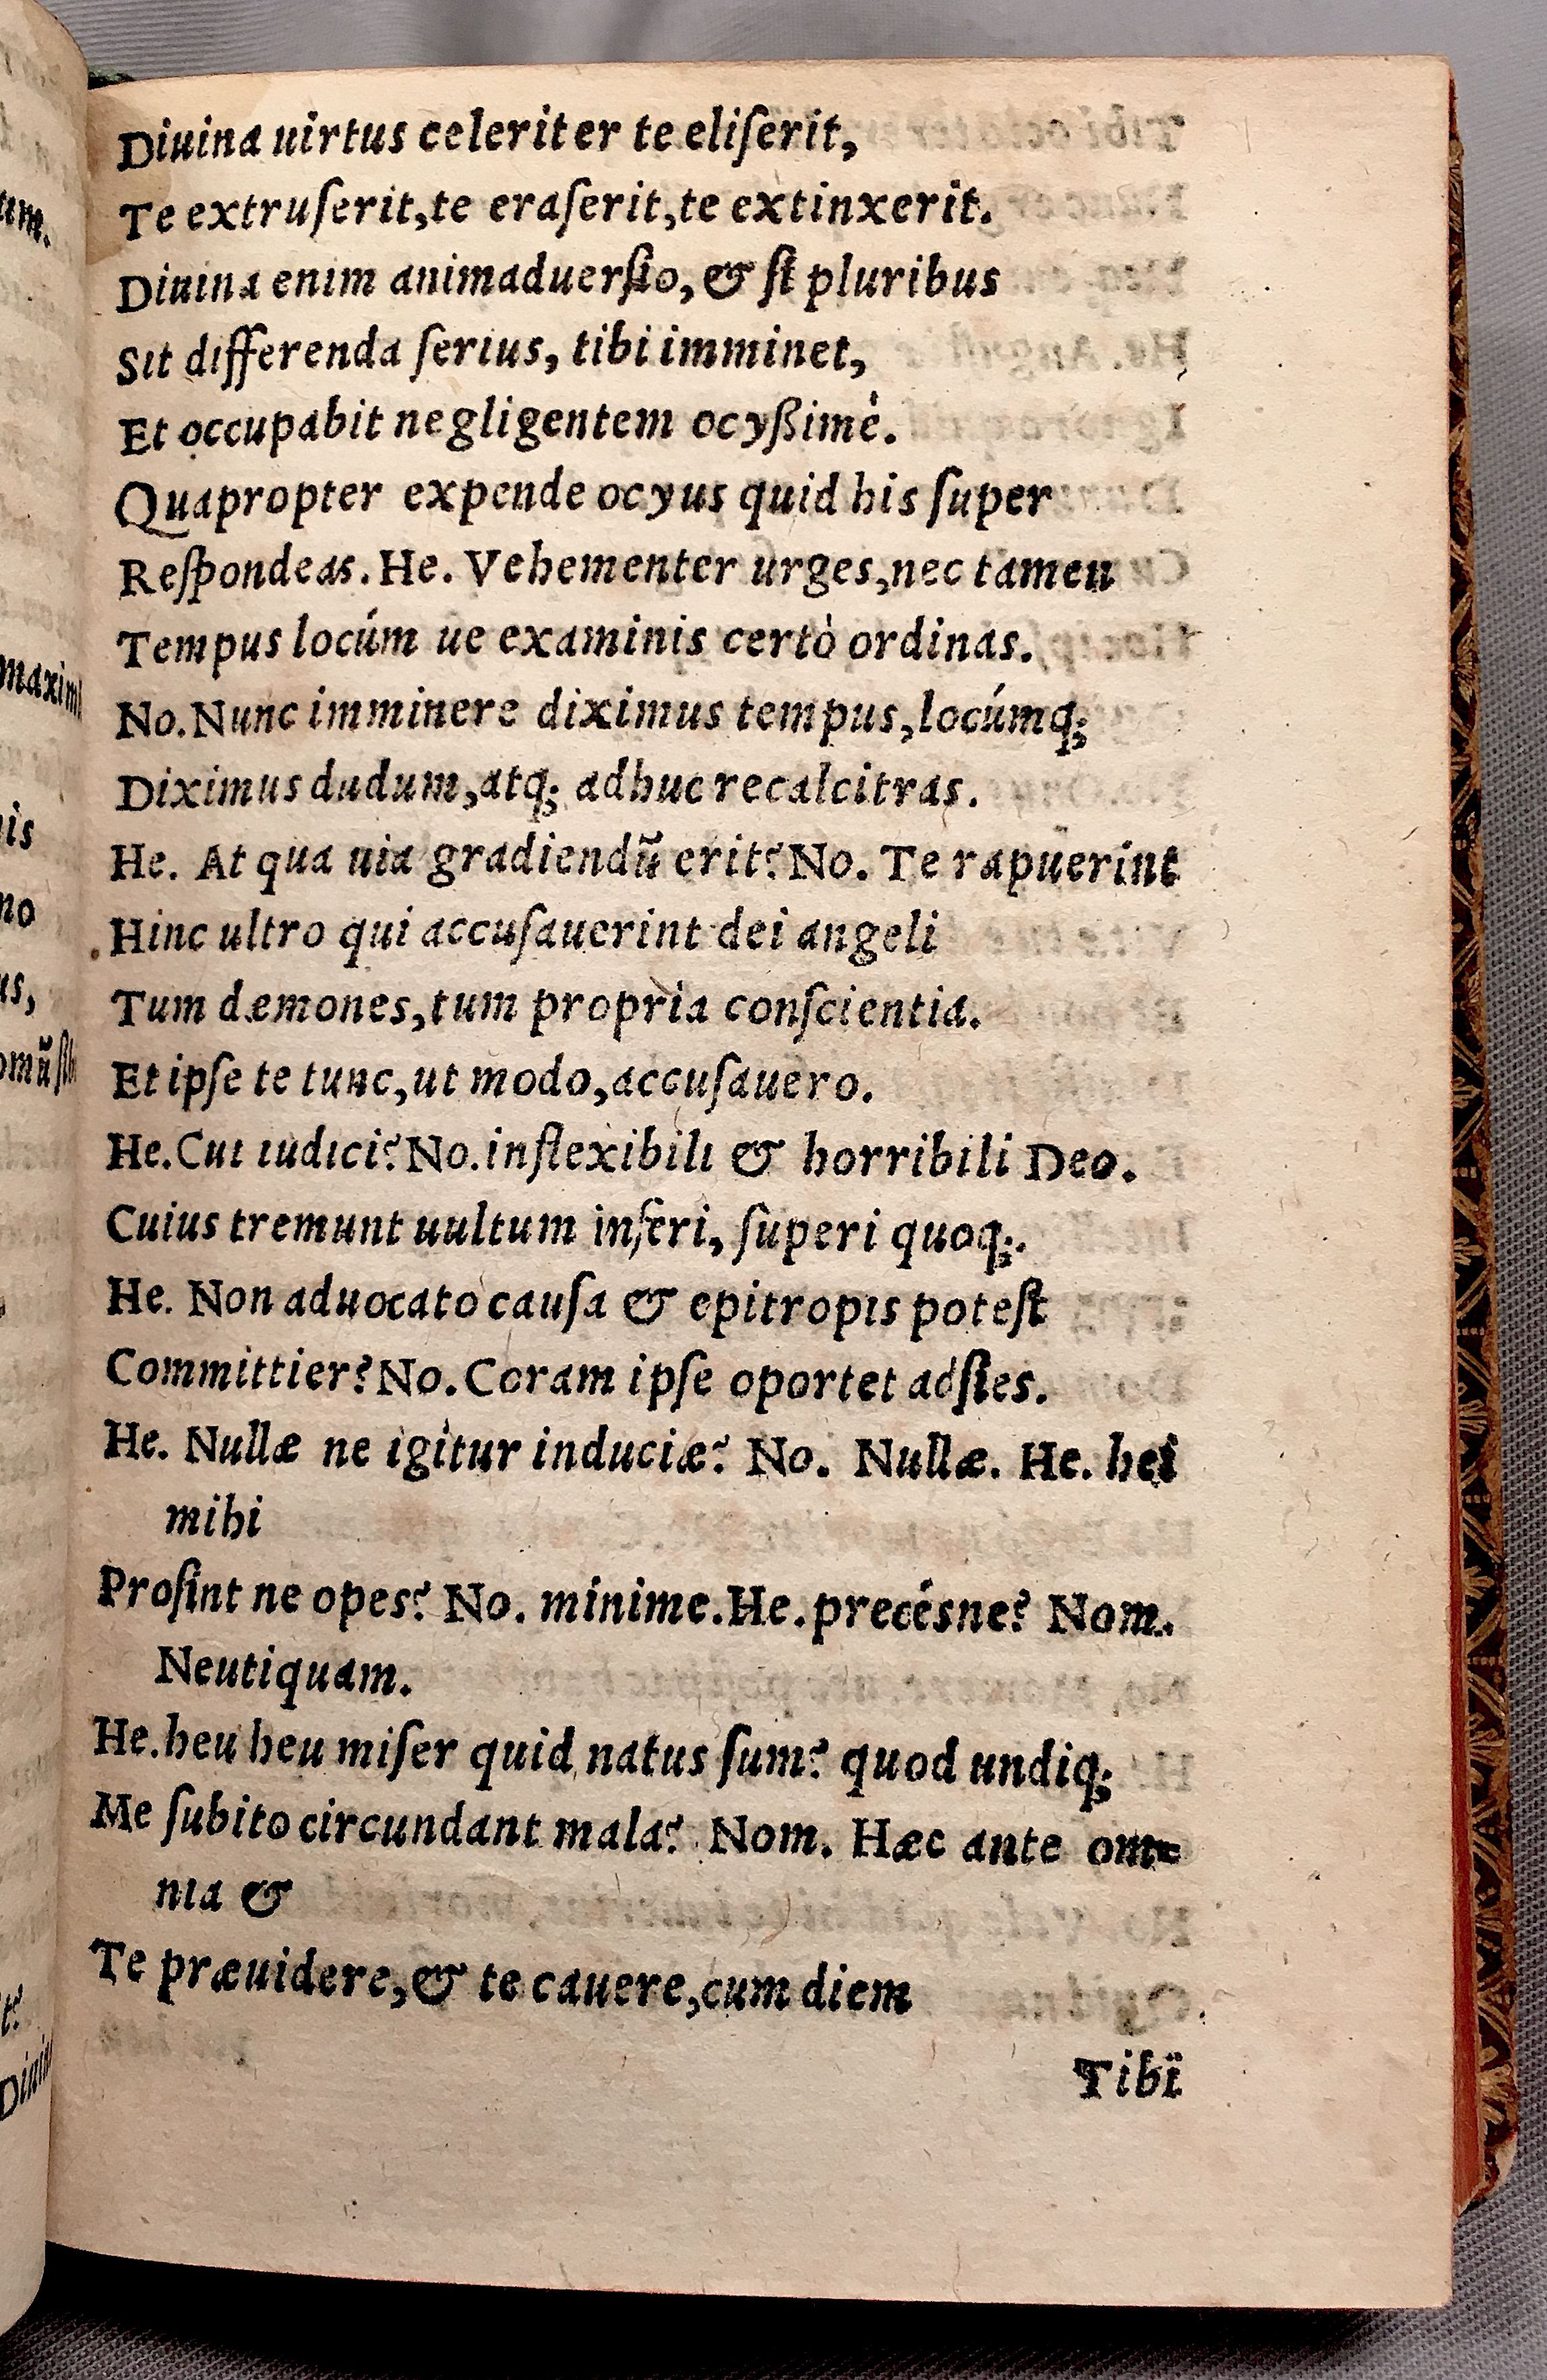 Diuina uirtus celeriter te eliſerit,
Te extruſerit,te eraſerit,te extinxerit.
Diuina enim animaduerſio, & ſi pluribus
Sit differenda ſerius, tibi imminet,
Et occupabit negligentem ocyßimè.
Quapropter expende ocyus quid his ſuper
Reſpondeas. He. Vehementer urges,nec tamen
Tempus locúm ue examinis certò ordinas.
No. Nunc imminere diximus tempus,locúmq;
Diximus dudum,atq; adhuc recalcitras.
He. At qua uia gradiendũ erit? No. Te rapuerint
Hinc ultro qui accuſauerint dei angeli
Tum dæmones,tum propria conſcientia.
Et ipſe te tunc,ut modo,accuſauero.
He. Cui iudici? No. inflexibili & horribili Deo.
Cuius tremunt uultum inferi, ſuperi quoq;.
He. Non aduocato cauſa & epitropis poteſt
Committier? No. Coram ipſe oportet adſtes.
He. Nullæ ne igitur induciæ? No. Nullæ. He. hei
mihi
Proſint ne opes? No. minime. He. precésne? Nom.
Neutiquam.
He. heu heu miſer quid natus ſum? quod undiq;
Me ſubito circundant mala? Nom. Hæc ante om-
nia &
Te præuidere,& te cauere,cum diem
Tibi
maximi
is
no
us,